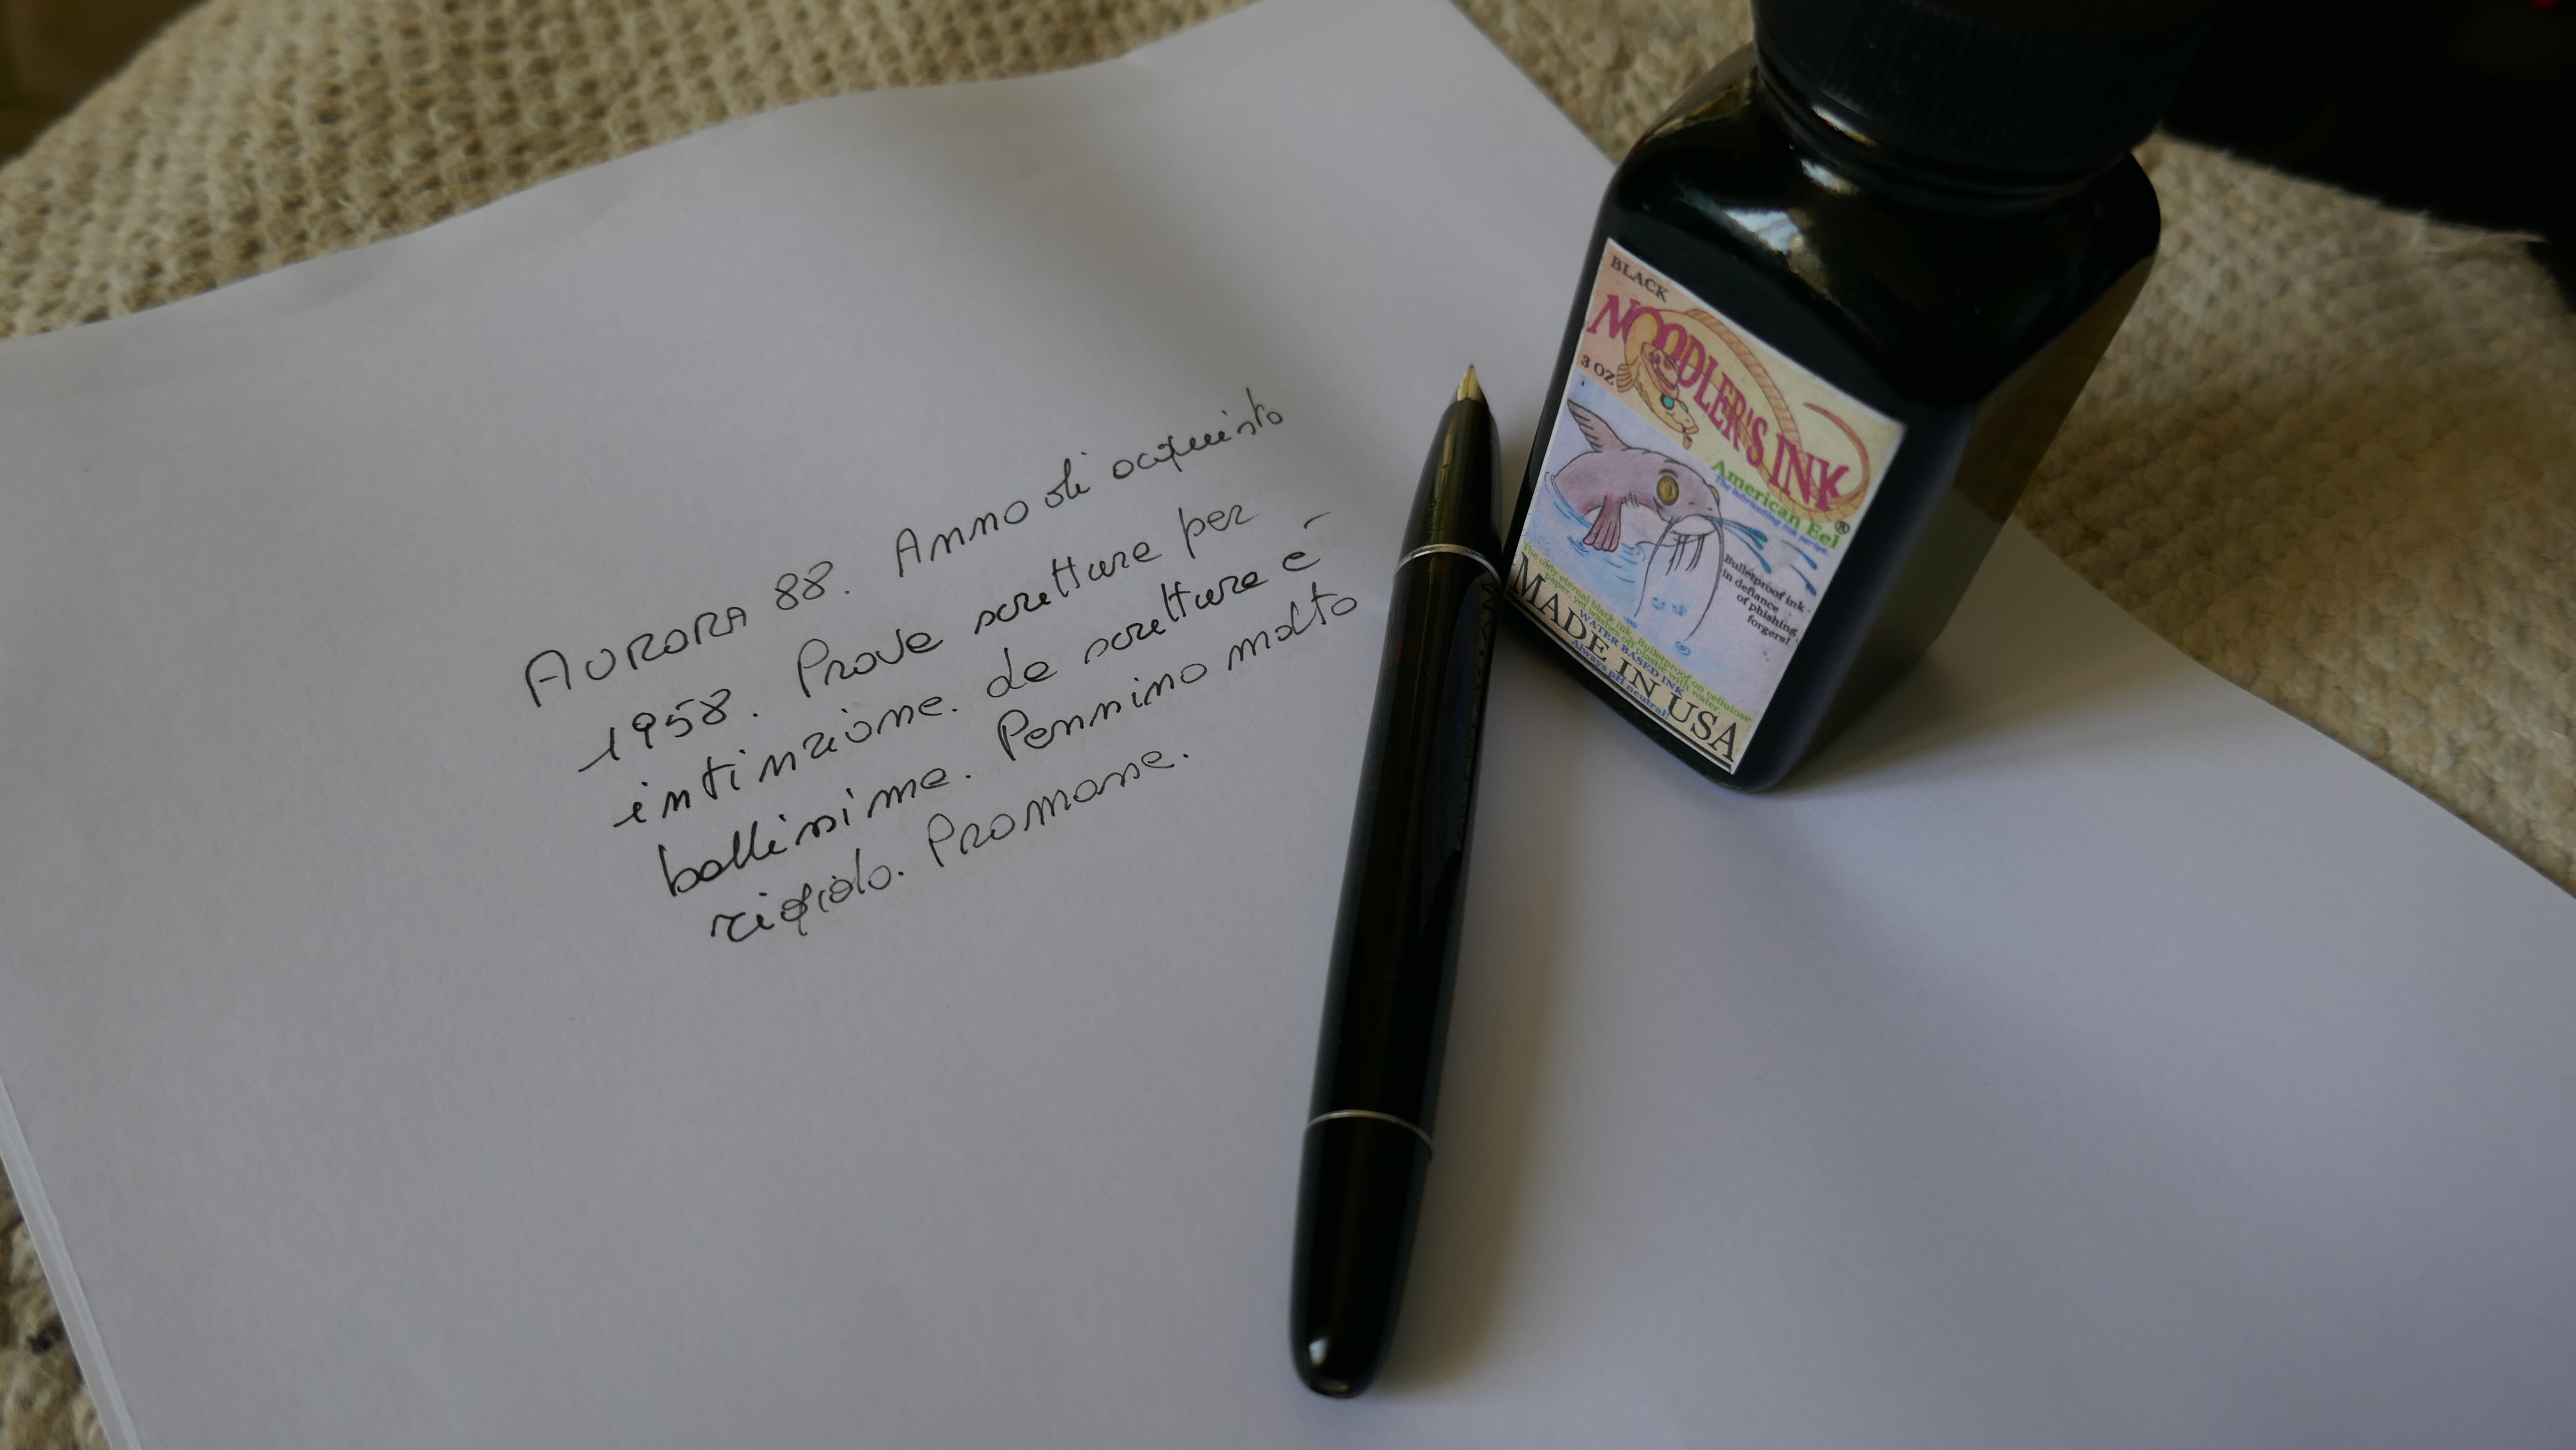 AURORA 88. Anno di acquisto
1958. Prova scrittura per
intinzione. La scrittura è
bellissima. Pennino molto
rigido. Promossa.
BLACK
NOODLER'S INK
3 OZ
American Eel
The lubricating ink series.
®
Bulletproof ink -
in defiance
of phishing
forgers!
The only eternal black ink. Bulletproof on cellulose
paper, yet wash off plastic with water.
WATER BASED INK
Always pH neutral!
MADE IN USA